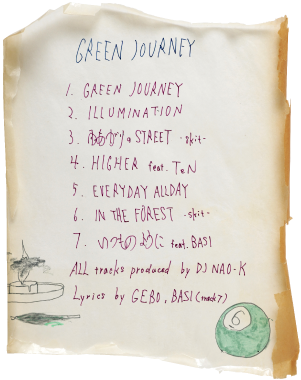 GREEN JOURNEY
1. GREEN JOURNEY
2. ILLUMINATION
3. STREET -skit-
4. HIGHER feat. TeN
5. EVERYDAY ALLDAY
6. IN THE FOREST -skit-
7. いつものように feat. BASI
ALL tracks produced by DJ NAO-K
Lyrics by GEBO, BASI (track 7)
6